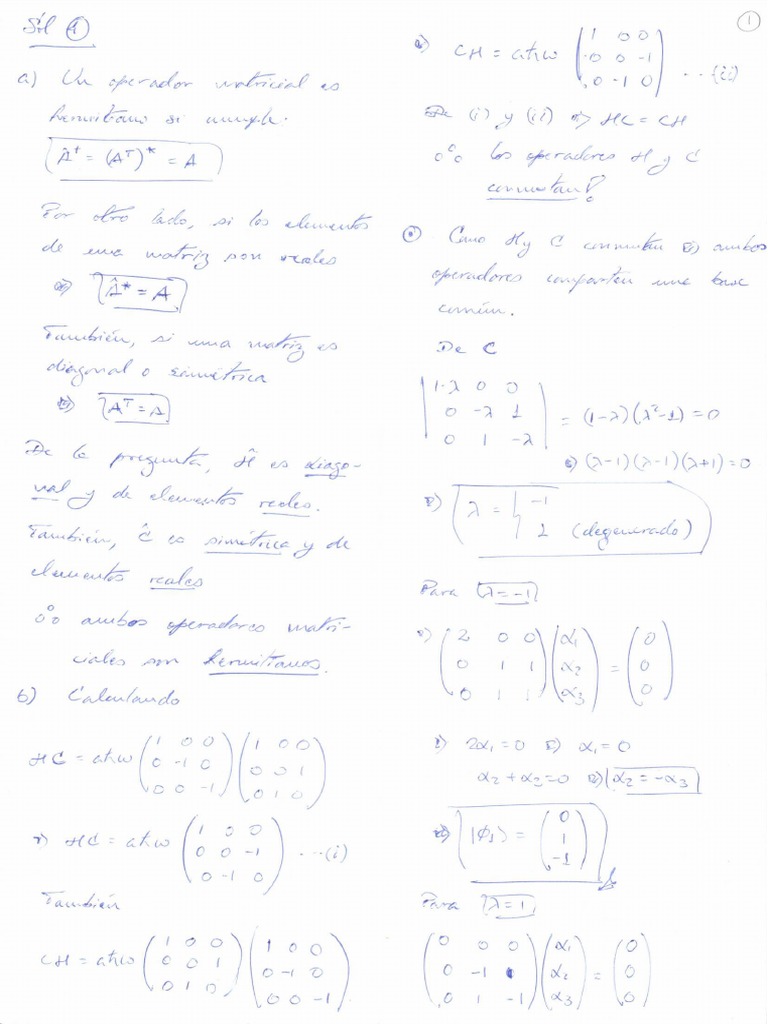 Sol ①
a) Un operador matricial es
hermitiano si cumple:
Â† = (Aᵀ)* = A
Por otro lado, si los elementos
de una matriz son reales
⇒ Â* = A
También, si una matriz es
diagonal o simétrica
⇒ Aᵀ = A
De la pregunta, Ĥ es diago-
nal y de elementos reales.
También, Ĉ es simétrica y de
elementos reales
∴ ambos operadores matri-
ciales son hermitianos.
b) Calculando
HC = aħω (1 0 0) (1 0 0)
(0 -1 0) (0 0 1)
(0 0 -1) (0 1 0)
⇒ HC = aħω (1 0 0)
(0 0 -1) ...(i)
(0 -1 0)
También
CH = aħω (1 0 0) (1 0 0)
(0 0 1) (0 -1 0)
(0 1 0) (0 0 -1)
①
⇒ CH = aħω (1 0 0)
(0 0 -1) ...(ii)
(0 -1 0)
De (i) y (ii) ⇒ HC = CH
∴ los operadores H y C
conmutan!
⊙ Como H y C conmutan ⇒ ambos
operadores comparten una base
común.
De C
|1-λ 0 0|
|0 -λ 1| = (1-λ)(λ²-1) = 0
|0 1 -λ|
⇒ (λ-1)(λ-1)(λ+1) = 0
⇒ λ = { -1
1 (degenerado)
Para λ = -1
⇒ (2 0 0) (α₁) (0)
(0 1 1) (α₂) = (0)
(0 1 1) (α₃) (0)
⇒ 2α₁ = 0 ⇒ α₁ = 0
α₂ + α₂ = 0 ⇒ α₂ = -α₃
⇒ |φ₁⟩ = (0)
(1)
(-1)
Para λ = 1
(0 0 0) (α₁) (0)
(0 -1 1) (α₂) = (0)
(0 1 -1) (α₃) (0)